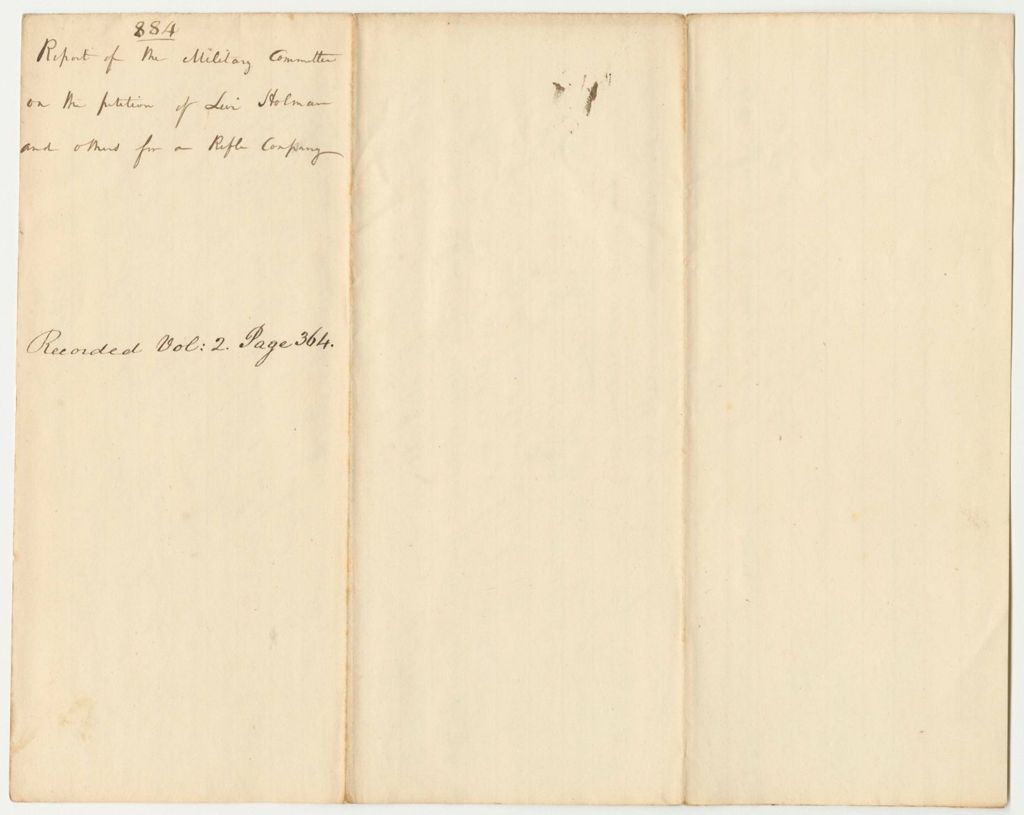 884
Report of the Military Committee
on the petition of Levi Holman
and others for a Rifle Company
Recorded Vol: 2. Page 364.